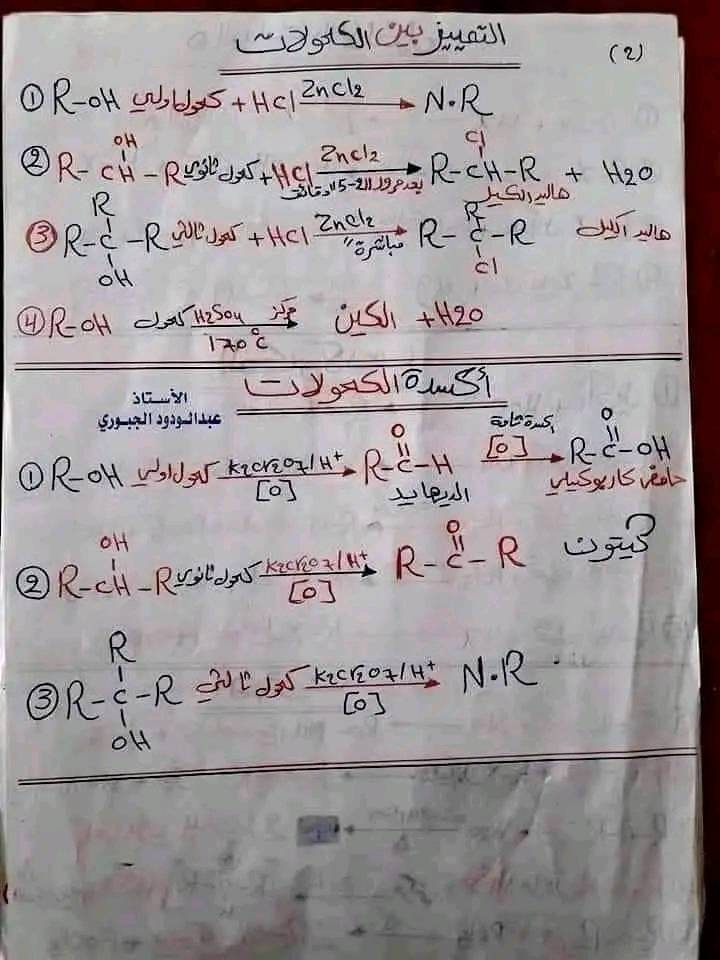 (2)
التمييز بين الكحولات
① R-OH كحول اولي + HCl ZnCl2 → N.R
② R-CH-R OH كحول ثانوي + HCl ZnCl2 بعد مرور 2-5 دقائق → R-CH-R Cl + H2O
هاليد الكيل
③ R-C-R R OH كحول ثالثي + HCl ZnCl2 مباشرة → R-C-R R Cl هاليد الكيل
④ R-OH كحول H2SO4 مركز 170°C → الكين + H2O
أكسدة الكحولات
الأستاذ
عبدالودود الجبوري
① R-OH كحول اولي K2Cr2O7/H+ [O] → R-C-H O اكسدة تامة [O] → R-C-OH O
الديهايد حامض كاربوكيلي
② R-CH-R OH كحول ثانوي K2Cr2O7/H+ [O] → R-C-R O كيتون
③ R-C-R R OH كحول ثالثي K2Cr2O7/H+ [O] → N.R